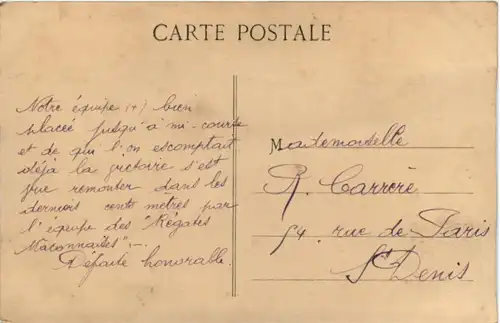 CARTE POSTALE
Notre équipe (+) bien
placée jusqu'à mi-course
et de qui l'on escomptait
déja la victoire s'est
vue remonter dans les
derniers cents mètres par
l'équipe des "Régates
Mâconnaises".
Défaite honorable.
Mademoiselle
R. Carrère
54, rue de Paris
St Denis